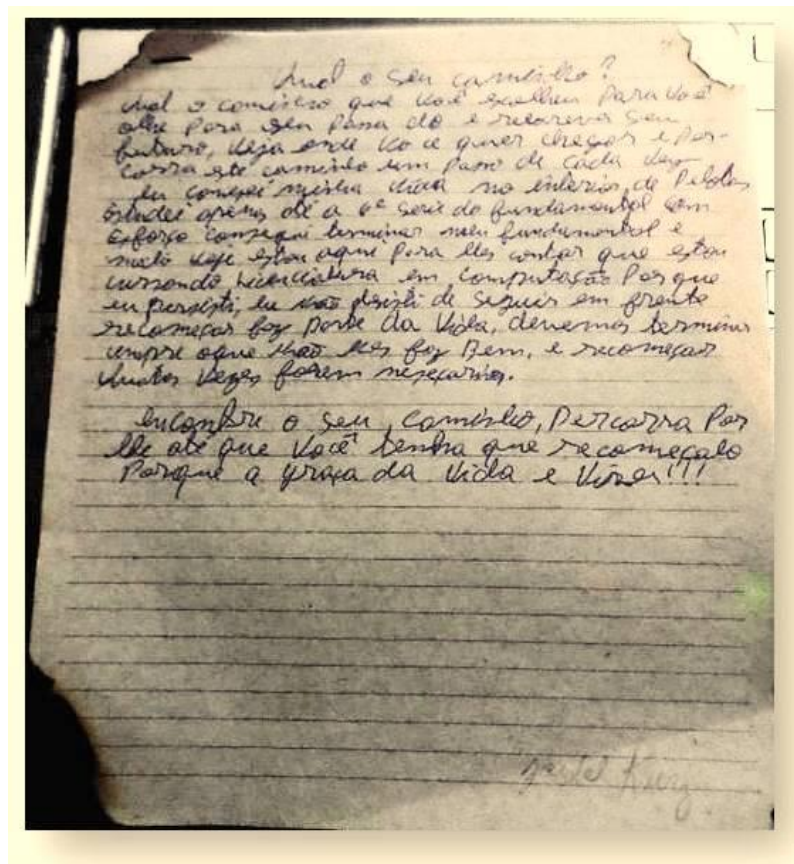 Qual o seu caminho?
Qual o caminho que você escolheu para você
olhe para seu passa do e reescreva seu
futuro, veja onde vo ce quer chegar e per-
corra este caminho um passo de cada vez
eu comecei minha vida no interior de Pelotas
estudei apenas até a 6ª serie do fundamental com
esforço consegui terminar meu fundamental e
médio hoje estou aqui para lhes contar que estou
cursando licenciatura em computação Porque
eu persisti, eu não desisti de seguir em frente
recomeçar faz parte da vida, devemos terminar
sempre oque não nos faz Bem, e recomeçar
quantas vezes forem neseçarios.
encontre o seu caminho, Percorra Por
ele até que você tenha que recomeçalo
Porque a graça da vida e viver!!!
Kurz